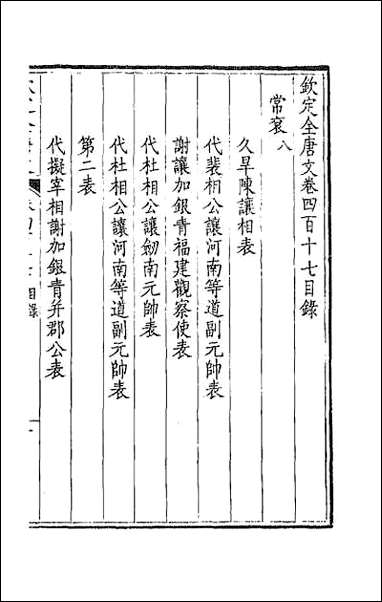 欽定全唐文卷四百十七目錄
常袞八
久旱陳讓相表
代裴相公讓河南等道副元帥表
謝讓加銀青福建觀察使表
代杜相公讓劒南元帥表
代杜相公讓河南等道副元帥表
第二表
代擬宰相謝加銀青并郡公表